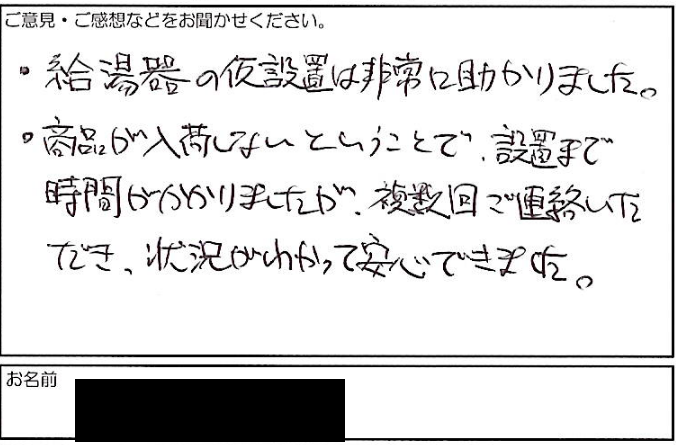 ご意見・ご感想などをお聞かせください。
・給湯器の仮設置は非常に助かりました。
・商品が入荷しないということで、設置まで
時間がかかりましたが、複数回ご連絡いた
だき、状況がわかって安心できました。
お名前